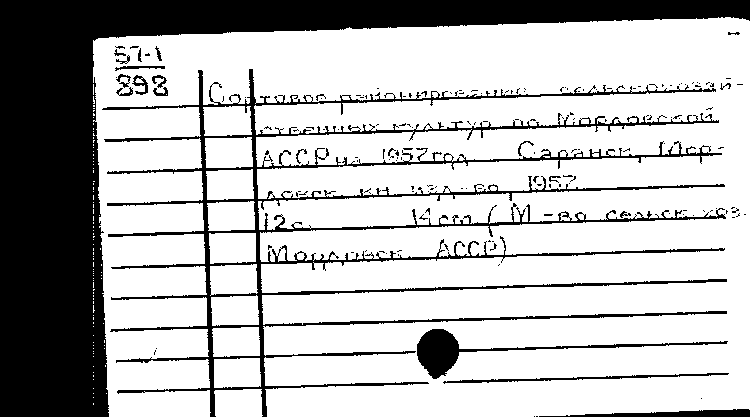 57-1
898
Сортовое районирование сельскохозяй-
ственных культур по Мордовской
АССР на 1957 год Саранск, Мор-
довск. кн. изд-во, 1957.
12 с. 14 см (М-во сельск. хоз.
Мордовск. АССР)